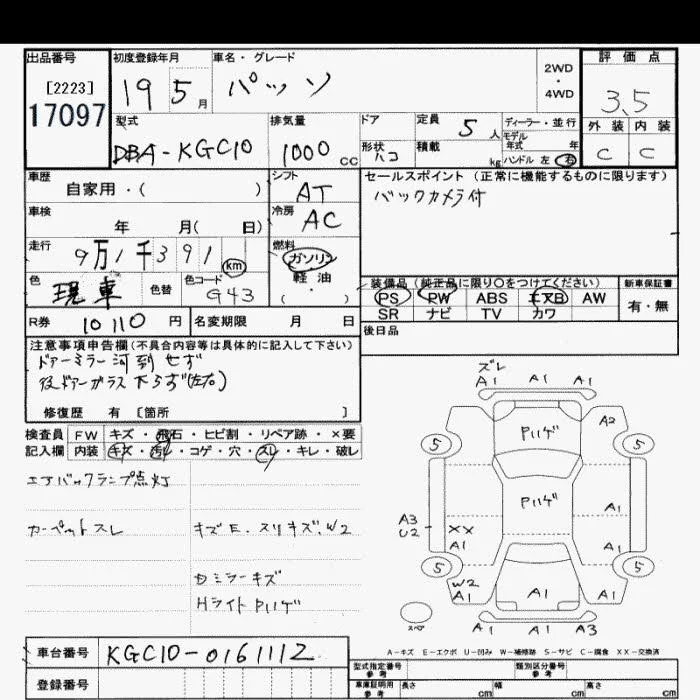 出品番号
[2223]
17097
初度登録年月
19 5月
車名・グレード
パッソ
2WD
・
4WD
評価点
3.5
外装 内装
C C
型式
DBA-KGC10
排気量
1000 cc
ドア
形状
ハコ
定員 5人
積載 kg
ディーラー・並行
モデル
年式 年
ハンドル 左 右
車歴
自家用・( )
シフト
AT
セールスポイント(正常に機能するものに限ります)
バックカメラ付
車検
年 月( 日)
冷房
AC
走行
9万1千391 km
燃料
ガソリン
軽油
( ・ )
色
現車
色替
色コード
G43
装備品(純正品に限り〇をつけてください)
PS PW ABS エアB AW
SR ナビ TV カワ
新車保証書
有・無
R券 10110 円
名変期限 月 日
後日品
注意事項申告欄(不具合内容等は具体的に記入して下さい)
ドアーミラー 到せず
後ドアーガラス下らず(左右)
修復歴 有 [箇所 ]
検査員
記入欄
FW キズ・飛石・ヒビ割・リペア跡・×要
内装 キズ・汚れ・コゲ・穴・スレ・キレ・破レ
エアバックランプ点灯
カーペットスレ
キズE.スリキズ.W2
Dミラーキズ
HライトPハゲ
ズレ
A1 A1 A1
Pハゲ
A2
5 5
Pハゲ
A3
U2
XX
A1
A1
A1
5 5
W2
A1
A1
A1
スペア
A1 A1 A3
A-キズ E-エクボ U-凹み W-補修跡 S-サビ C-腐食 XX-交換済
車台番号 KGC10-0161112
登録番号
型式指定番号
参考
類別区分番号
参考
車庫証明用
参考
長さ cm 幅 cm 高さ cm